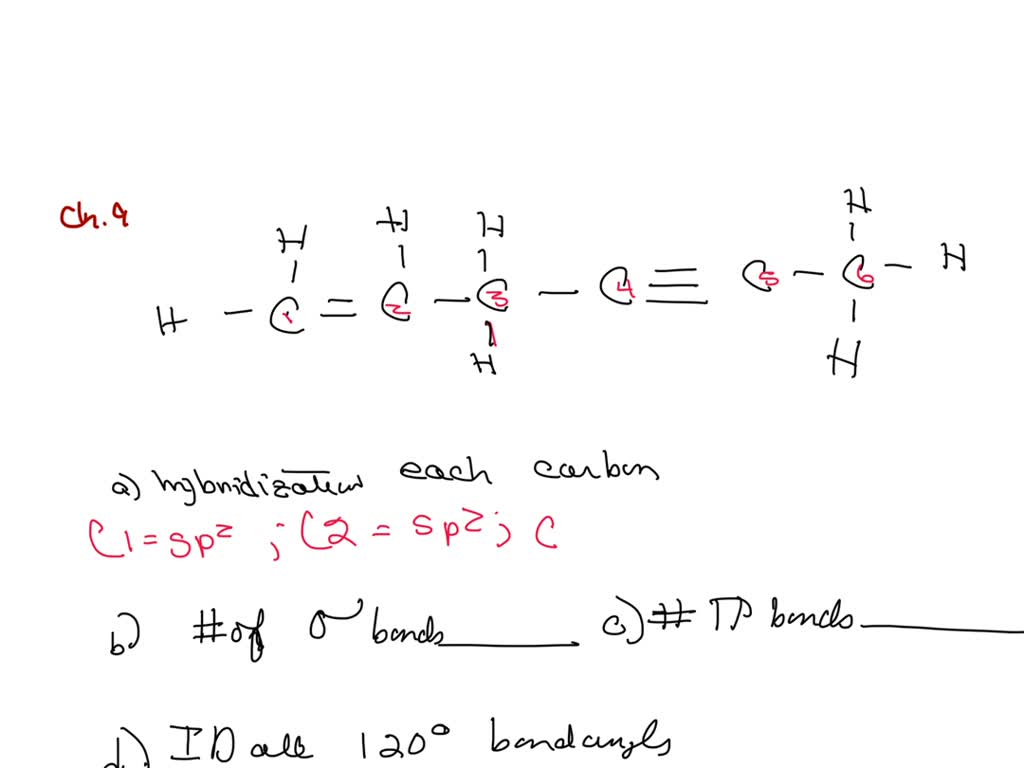 Ch. 9
H H H H
H - C = C - C - C ≡ C - C - H
1 2 3 4 5 6
H H
a) hybridization each carbon
C1 = sp² ; C2 = sp² ; C
b) # of σ bonds____ c) # π bonds____
d) ID all 120° bond angls